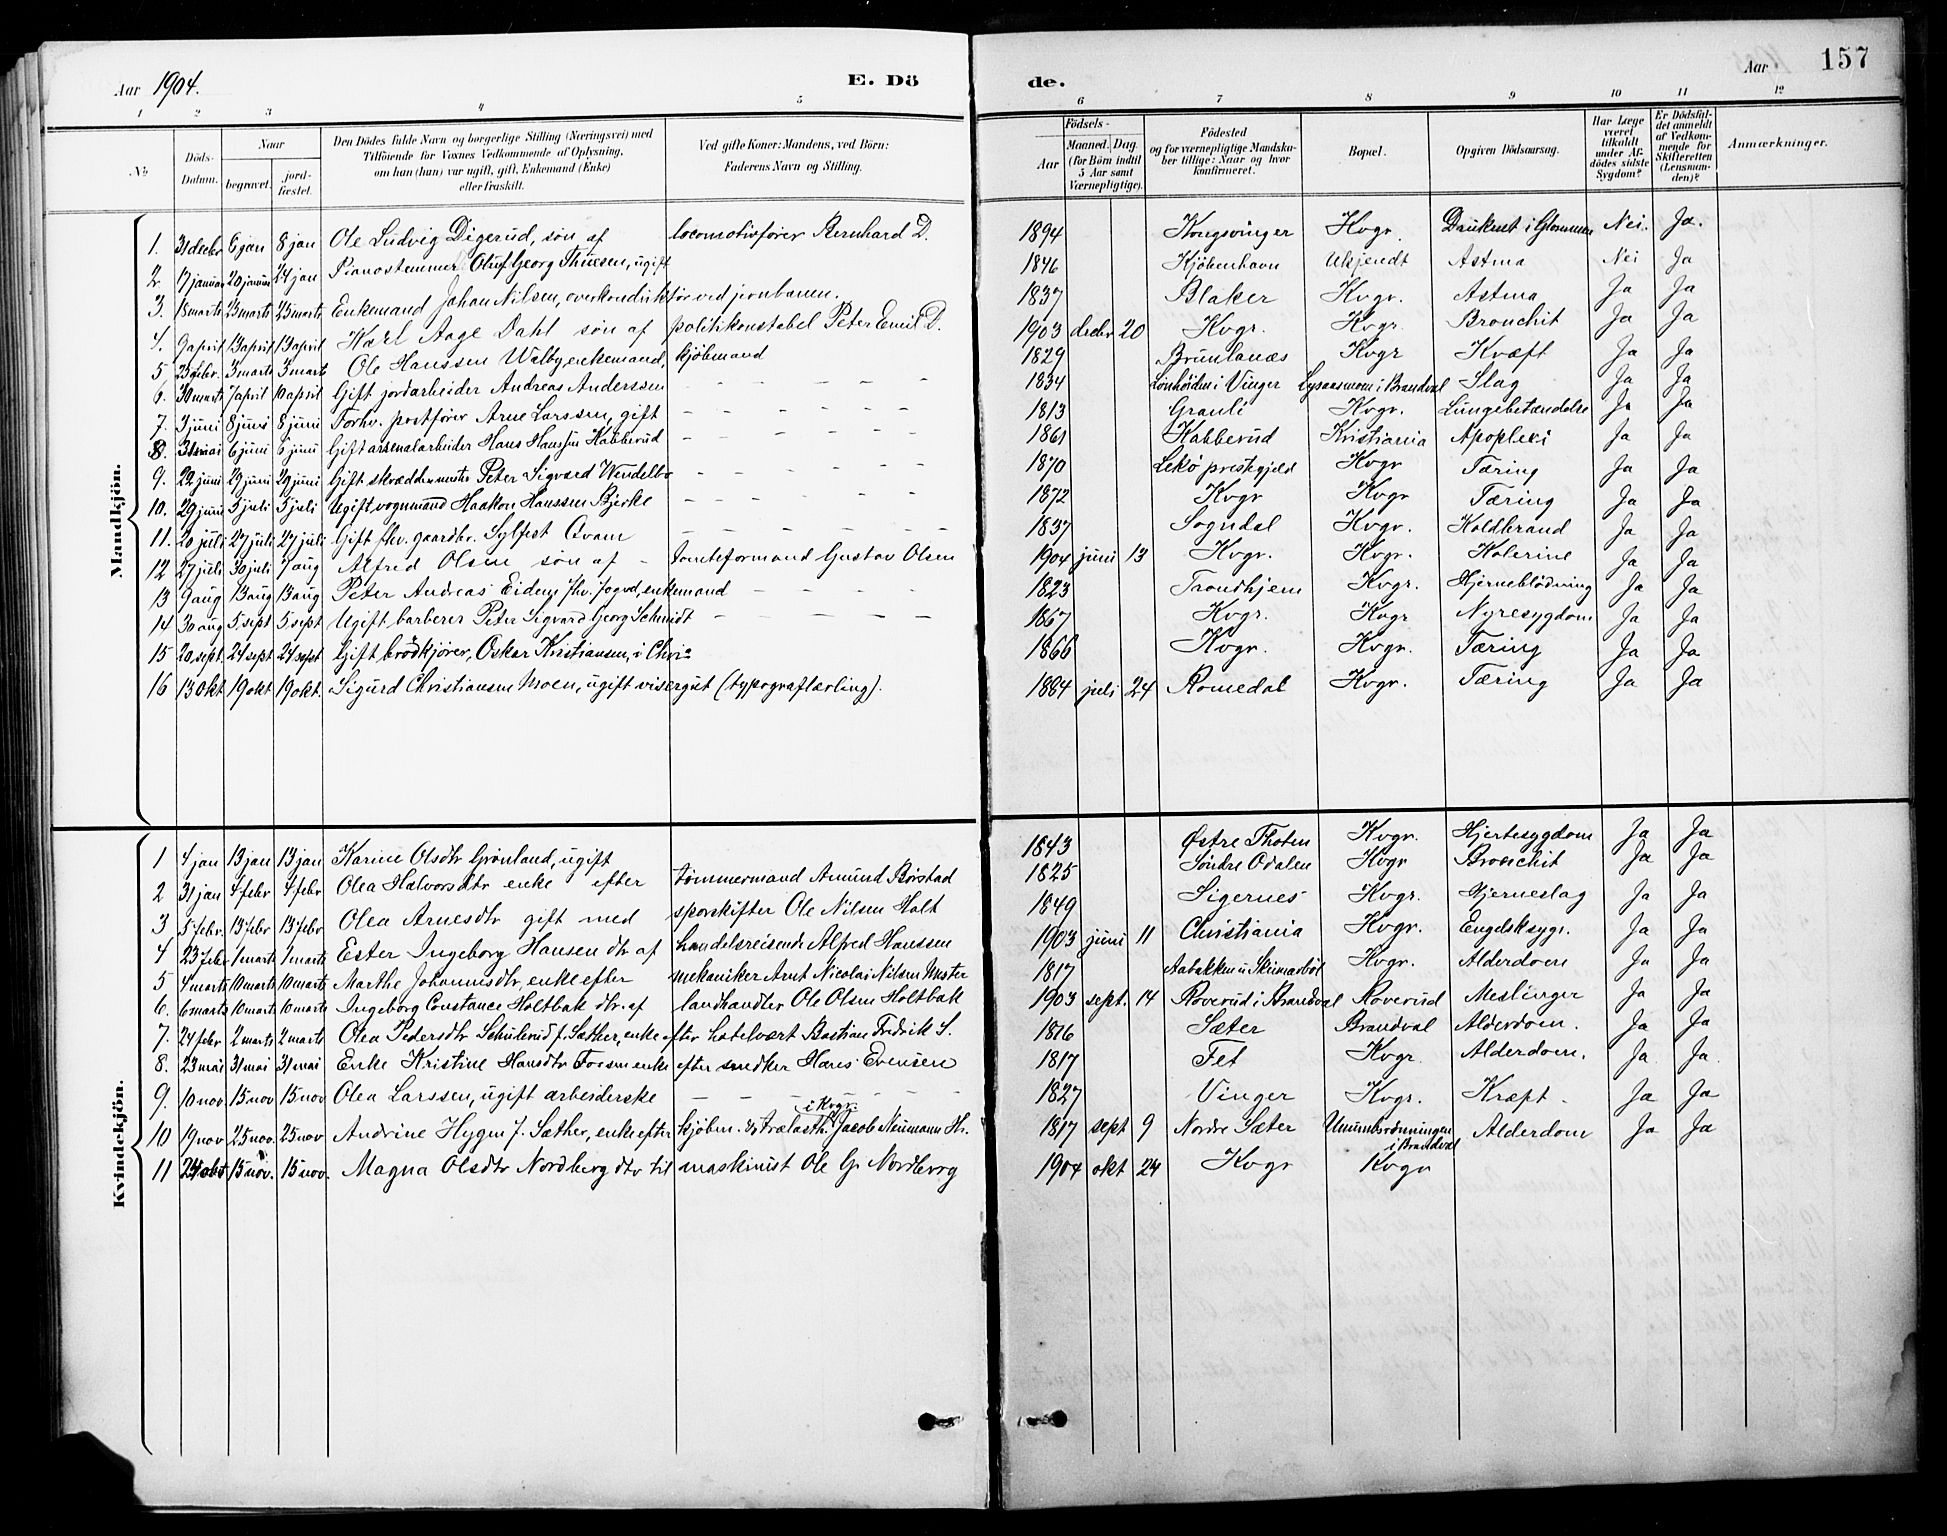 Aar 1904. E. Dö de. Aar 157
1 2 3 4 5 6 7 8 9 10 11 12
No Döds-Datum. Naar begravet. jord-fæstet. Den Dödes fulde Navn og borgerlige Stilling (Næringsvei) med Tilföiende for Voxnes Vedkommende af Oplysning, om han (hun) var ugift, gift, Enkemand (Enke) eller fraskilt. Ved gifte Koner: Mandens, ved Börn: Faderens Navn og Stilling. Födsels- Aar Maaned. Dag. (for Börn indtil 5 Aar samt Værnepligtige). Födested og for værnepligtige Mandskaber tillige: Naar og hvor konfirmeret. Bopæl. Opgiven Dödsaarsag. Har Læge været tilkaldt under Afdödes sidste Sygdom? Er Dödsfaldet anmeldt af Vedkommende for Skifteretten (Lensmanden)? Anmærkninger.
Mandkjön.
1. 31 decbr 6 jan 8 jan Ole Ludvig Digerud, søn af locomotivfører Bernhard D. 1894 Kongsvinger Kvgr. Druknet i Glommen Nei. Ja.
2. 17 januar 20 januar 24 jan Pianostemmer Oluf Georg Thuesen, ugift 1846 Kjøbenhavn Ukjendt Astma Nei Ja
3. 18 marts 23 marts 25 marts Enkemand Johan Nilsen, overkonduktør ved jernbanen. 1837 Blaker Kvgr. Astma Ja Ja
4. 9 april 13 april 13 april Karl Aage Dahl søn af politikonstabel Peter Emil D. 1903 decbr 20 Kvgr. Kvgr. Bronchit Ja Ja
5 25 febr. 3 marts 3 marts Ole Hanssen Walby, enkemand, kjøbmand 1829 Brunlanæs Kvgr Kræft Ja Ja
6. 30 marts 7 april 10 april Gift jordarbeider Andreas Anderssen 1834 Lønhøiden i Vinger Lysaasmom i Brandval Slag Ja Ja
7. 3 juni 8 juni 8 juni Forhv. postfører Arne Larssen, gift 1813 Granli Kvgr. Lungebetændelse Ja Ja
8. 31 mai 6 juni 6 juni Gift arsenalarbeider Hans Hanssen Kabberud 1861 Kabberud Kristiania Apopleksi Ja Ja
9. 22 juni 29 juni 29 juni Gift skræddermester Peter Sigvard Wendelbo 1870 Lekø prestegjeld Kvgr Tæring Ja Ja
10. 29 juni 5 juli 5 juli Ugift vognmand Haakon Hanssen Bjerke 1872 Kvgr Kvgr Tæring Ja Ja
11. 20 juli 27 juli 27 juli Gift fhv. gaardbr. Sylfest Qvam 1837 Sogndal Kvgr. Koldbrand Ja Ja
12 27 juli 30 juli 7 aug Alfred Olsen søn af tomteformand Gustav Olsen 1904 juni 13 Kvgr. Kvgr. Kolerine Ja Ja
13 9 aug 13 aug 13 aug Peter Andreas Eidem fhv. fogd, enkemand 1823 Trondhjem Kvgr. Hjerneblødning Ja Ja
14 30 aug 5 sept 5 sept Ugift barberer Peter Sigvard Georg Schmidt 1867 Kvgr. Kvgr Nyresygdom Ja Ja
15 20 sept. 24 sept 24 sept Gift brødkjører, Oskar Kristiansen, i Chria 1866 Kvgr. Kvgr. Tæring Ja Ja
16 13 okt 19 okt 19 okt. Sigurd Christiansen Moen, ugift visergut (typograflærling). 1884 juli 24 Romedal Kvgr. Tæring Ja Ja
Kvindekjön.
1 4 jan 13 jan 13 jan Karine Olsdtr Grønland, ugift 1843 Østre Thoten Kvgr. Hjertesygdom Ja Ja
2 31 jan 4 febr 4 febr Olea Halvorsdtr enke efter tømmermand Amund Børstad 1825 Søndre Odalen Kvgr Bronchit Ja Ja
3 5 febr. 13 febr 13 febr Olea Arnesdtr gift med sporskifter Ole Nilsen Holt 1849 Sigernes Kvgr. Hjerneslag Ja Ja
4 23 febr 1 marts 1 marts Ester Ingeborg Hansen dtr af handelsreisende Alfred Hanssen 1903 juni 11 Christiania Kvgr. Engelsksyge. Ja Ja
5 4 marts 10 marts 10 marts Marthe Johannesdtr, enke efter mekaniker Arnt Nicolai Nilsen Moster 1817 Aabakken u. Skinnarbøl Kvgr. Alderdom Ja Ja
6. 6 marts 10 marts 10 marts Ingeborg Constance Holtbak dtr. af landhandler Ole Olsen Holtbak 1903 sept. 14 Roverud i Brandval Roverud Meslinger Ja Ja
7. 24 febr 2 marts 2 marts Olea Pedersdtr Schulerud f. Sæther, enke efter hotelvært Bastian Fredrik S. 1816 Sæter Brandval Alderdom. Ja Ja
8. 23 mai 31 mai 31 mai Enke Kristine Hansdtr Fossm enke efter snedker Hans Evensen 1817 Fet Kvgr. Alderdom. Ja Ja
9. 10 nov 15 nov 15 nov Olea Larssen, ugift arbeiderske 1827 Vinger Kvgr. Kræft. Ja Ja
i Kvgr.
10 19 nov 25 nov. 25 nov Andrine Hygen f. Sæther, enke efter kjøbm. og trælasth. Jacob Neumann H. 1817 sept 9 Nordre Sæter i Brandval Alderdom Ja Ja
11 15 nov. 15 nov. Magna Olsdtr Nordberg dtr til maskinist Ole G. Nordberg 1904 okt 24 Kvgr Kvgr